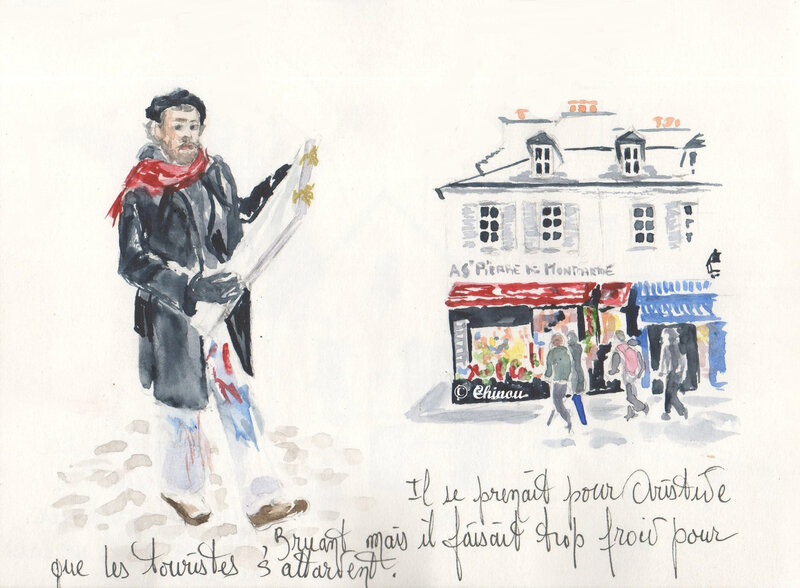 A St PIERRE DE MONTMARTRE
© Chinou
Il se prenait pour Aristide
Bruant mais il faisait trop froid pour
que les touristes s'attardent.